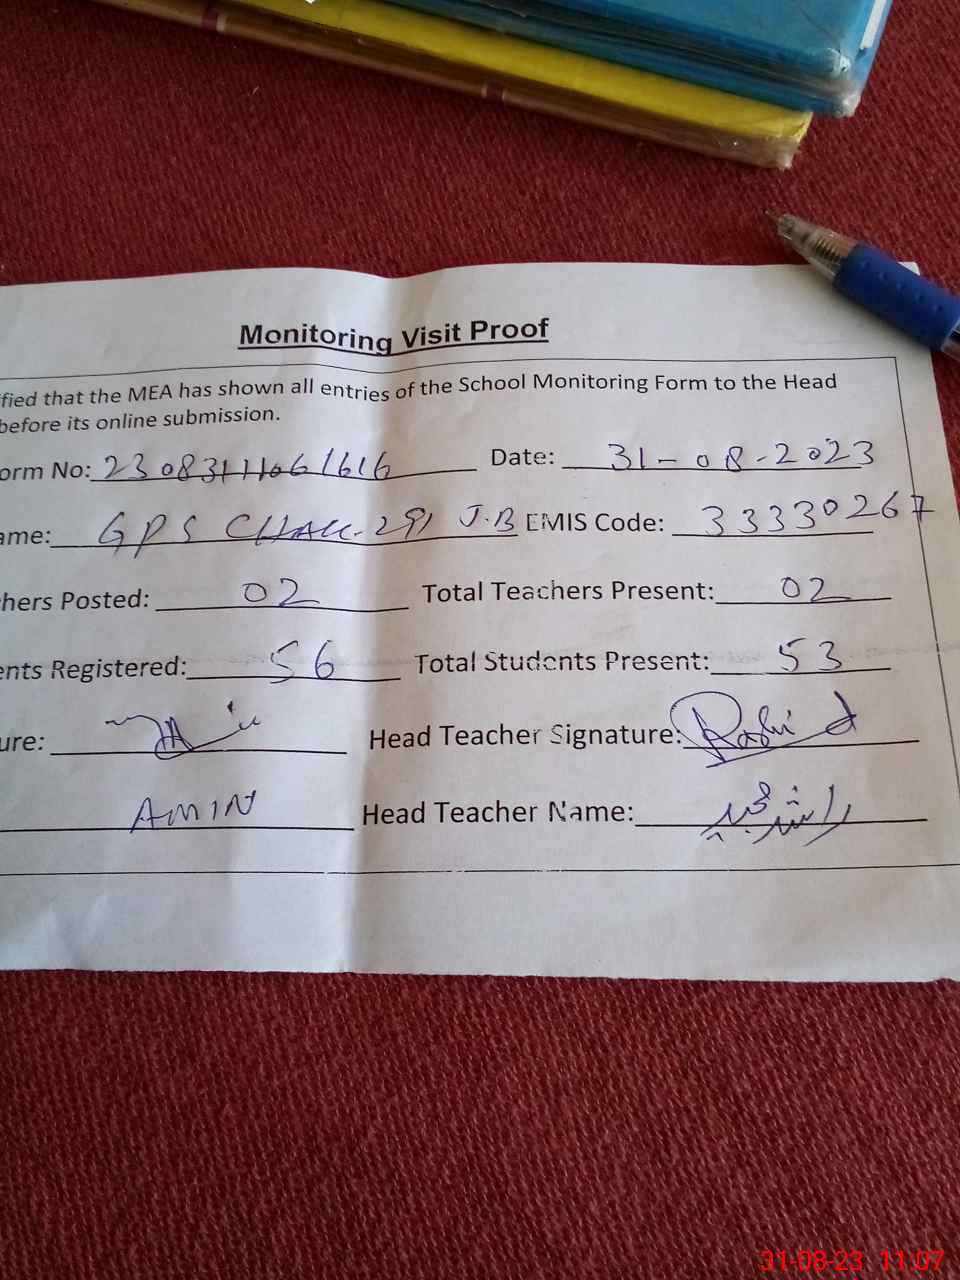 Monitoring Visit Proof
fied that the MEA has shown all entries of the School Monitoring Form to the Head
before its online submission.
orm No: 23083111061616 Date: 31-08-2023
ame: GPS CHAK-291 J.B EMIS Code: 33330267
hers Posted: 02 Total Teachers Present: 02
ents Registered: 56 Total Students Present: 53
ure: Head Teacher Signature: Rashid
AMIN Head Teacher Name: راشد
31-08-23 11:07